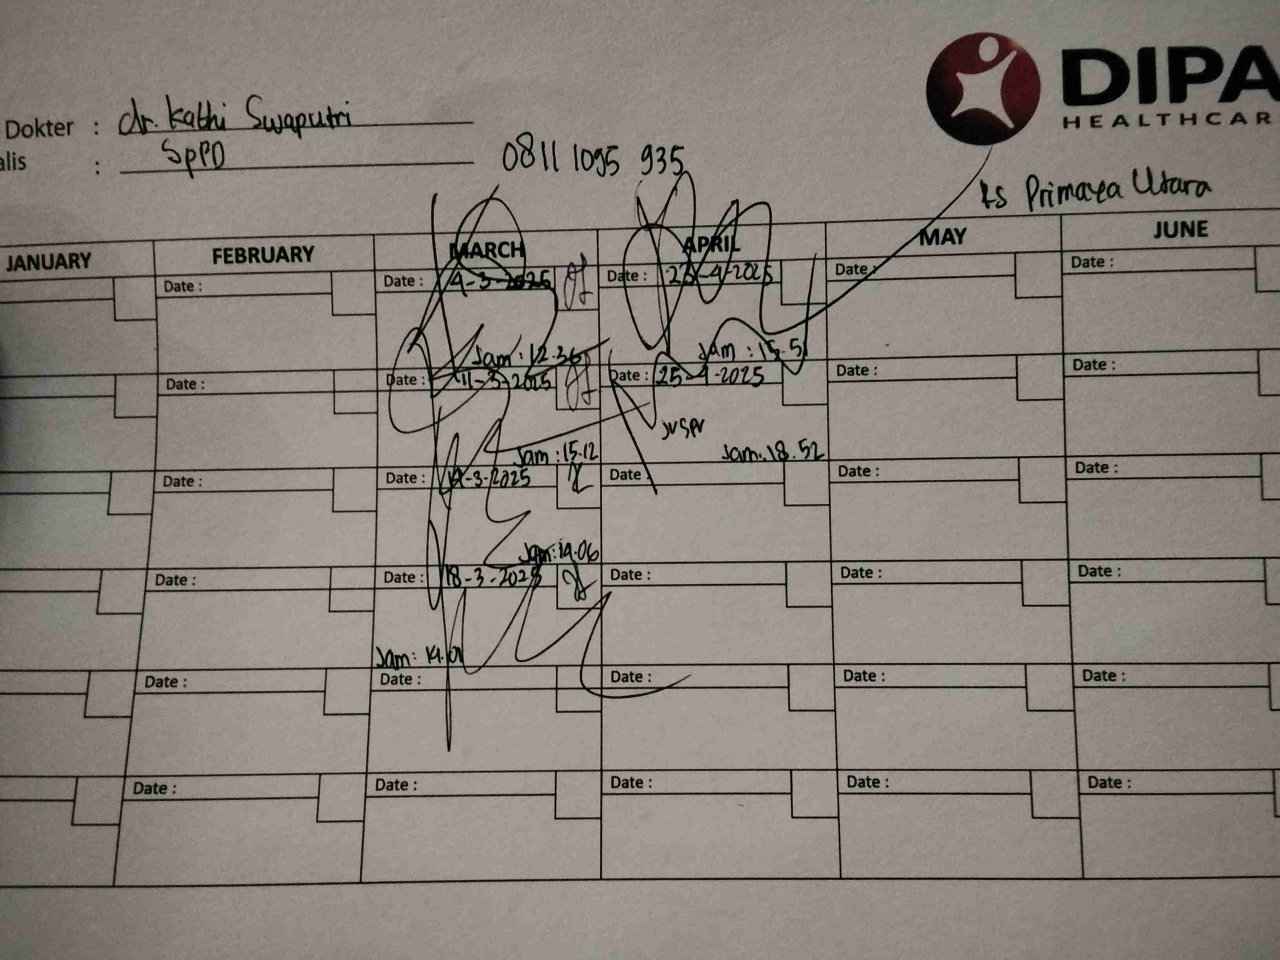 DIPA
HEALTHCAR
Dokter : dr. Kathi Swaputri
alis : SpPD
0811 1095 935
Rs Primaya Utara
JANUARY FEBRUARY MARCH APRIL MAY JUNE
Date : Date : 4-3-2025 Date : 23-4-2025 Date : Date :
Jam : 12.36 Jam : 15.51
Date : Date : 11-3-2025 Date : 25-4-2025 Date : Date :
Jam : 15.12 Jam. 18.52
Date : Date : 12-3-2025 Date : Date : Date :
Jam: 14.06
Date : Date : 18-3-2025 Date : Date : Date :
Jam: 14.01
Date : Date : Date : Date : Date :
Date : Date : Date : Date : Date :